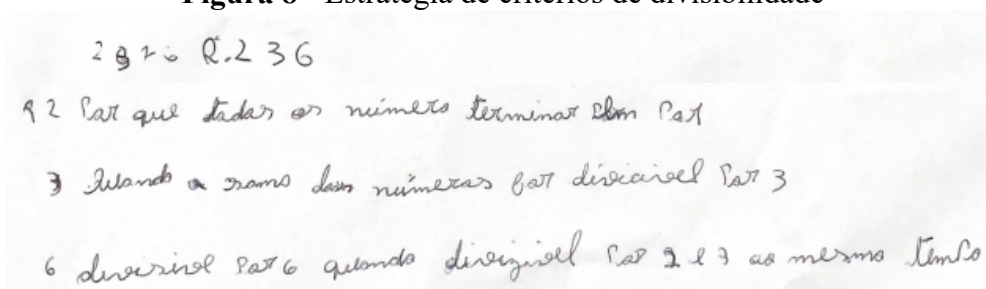 Figura 6 - Estratégia de critérios de divisibilidade
R.2 3 6
2 Par que tadas os número terminar em Par
3 Quando a soma dos númeras far diviciavel Par 3
6 divisivel Par 6 quando divizivel Par 2 e 3 ao mesmo tempo